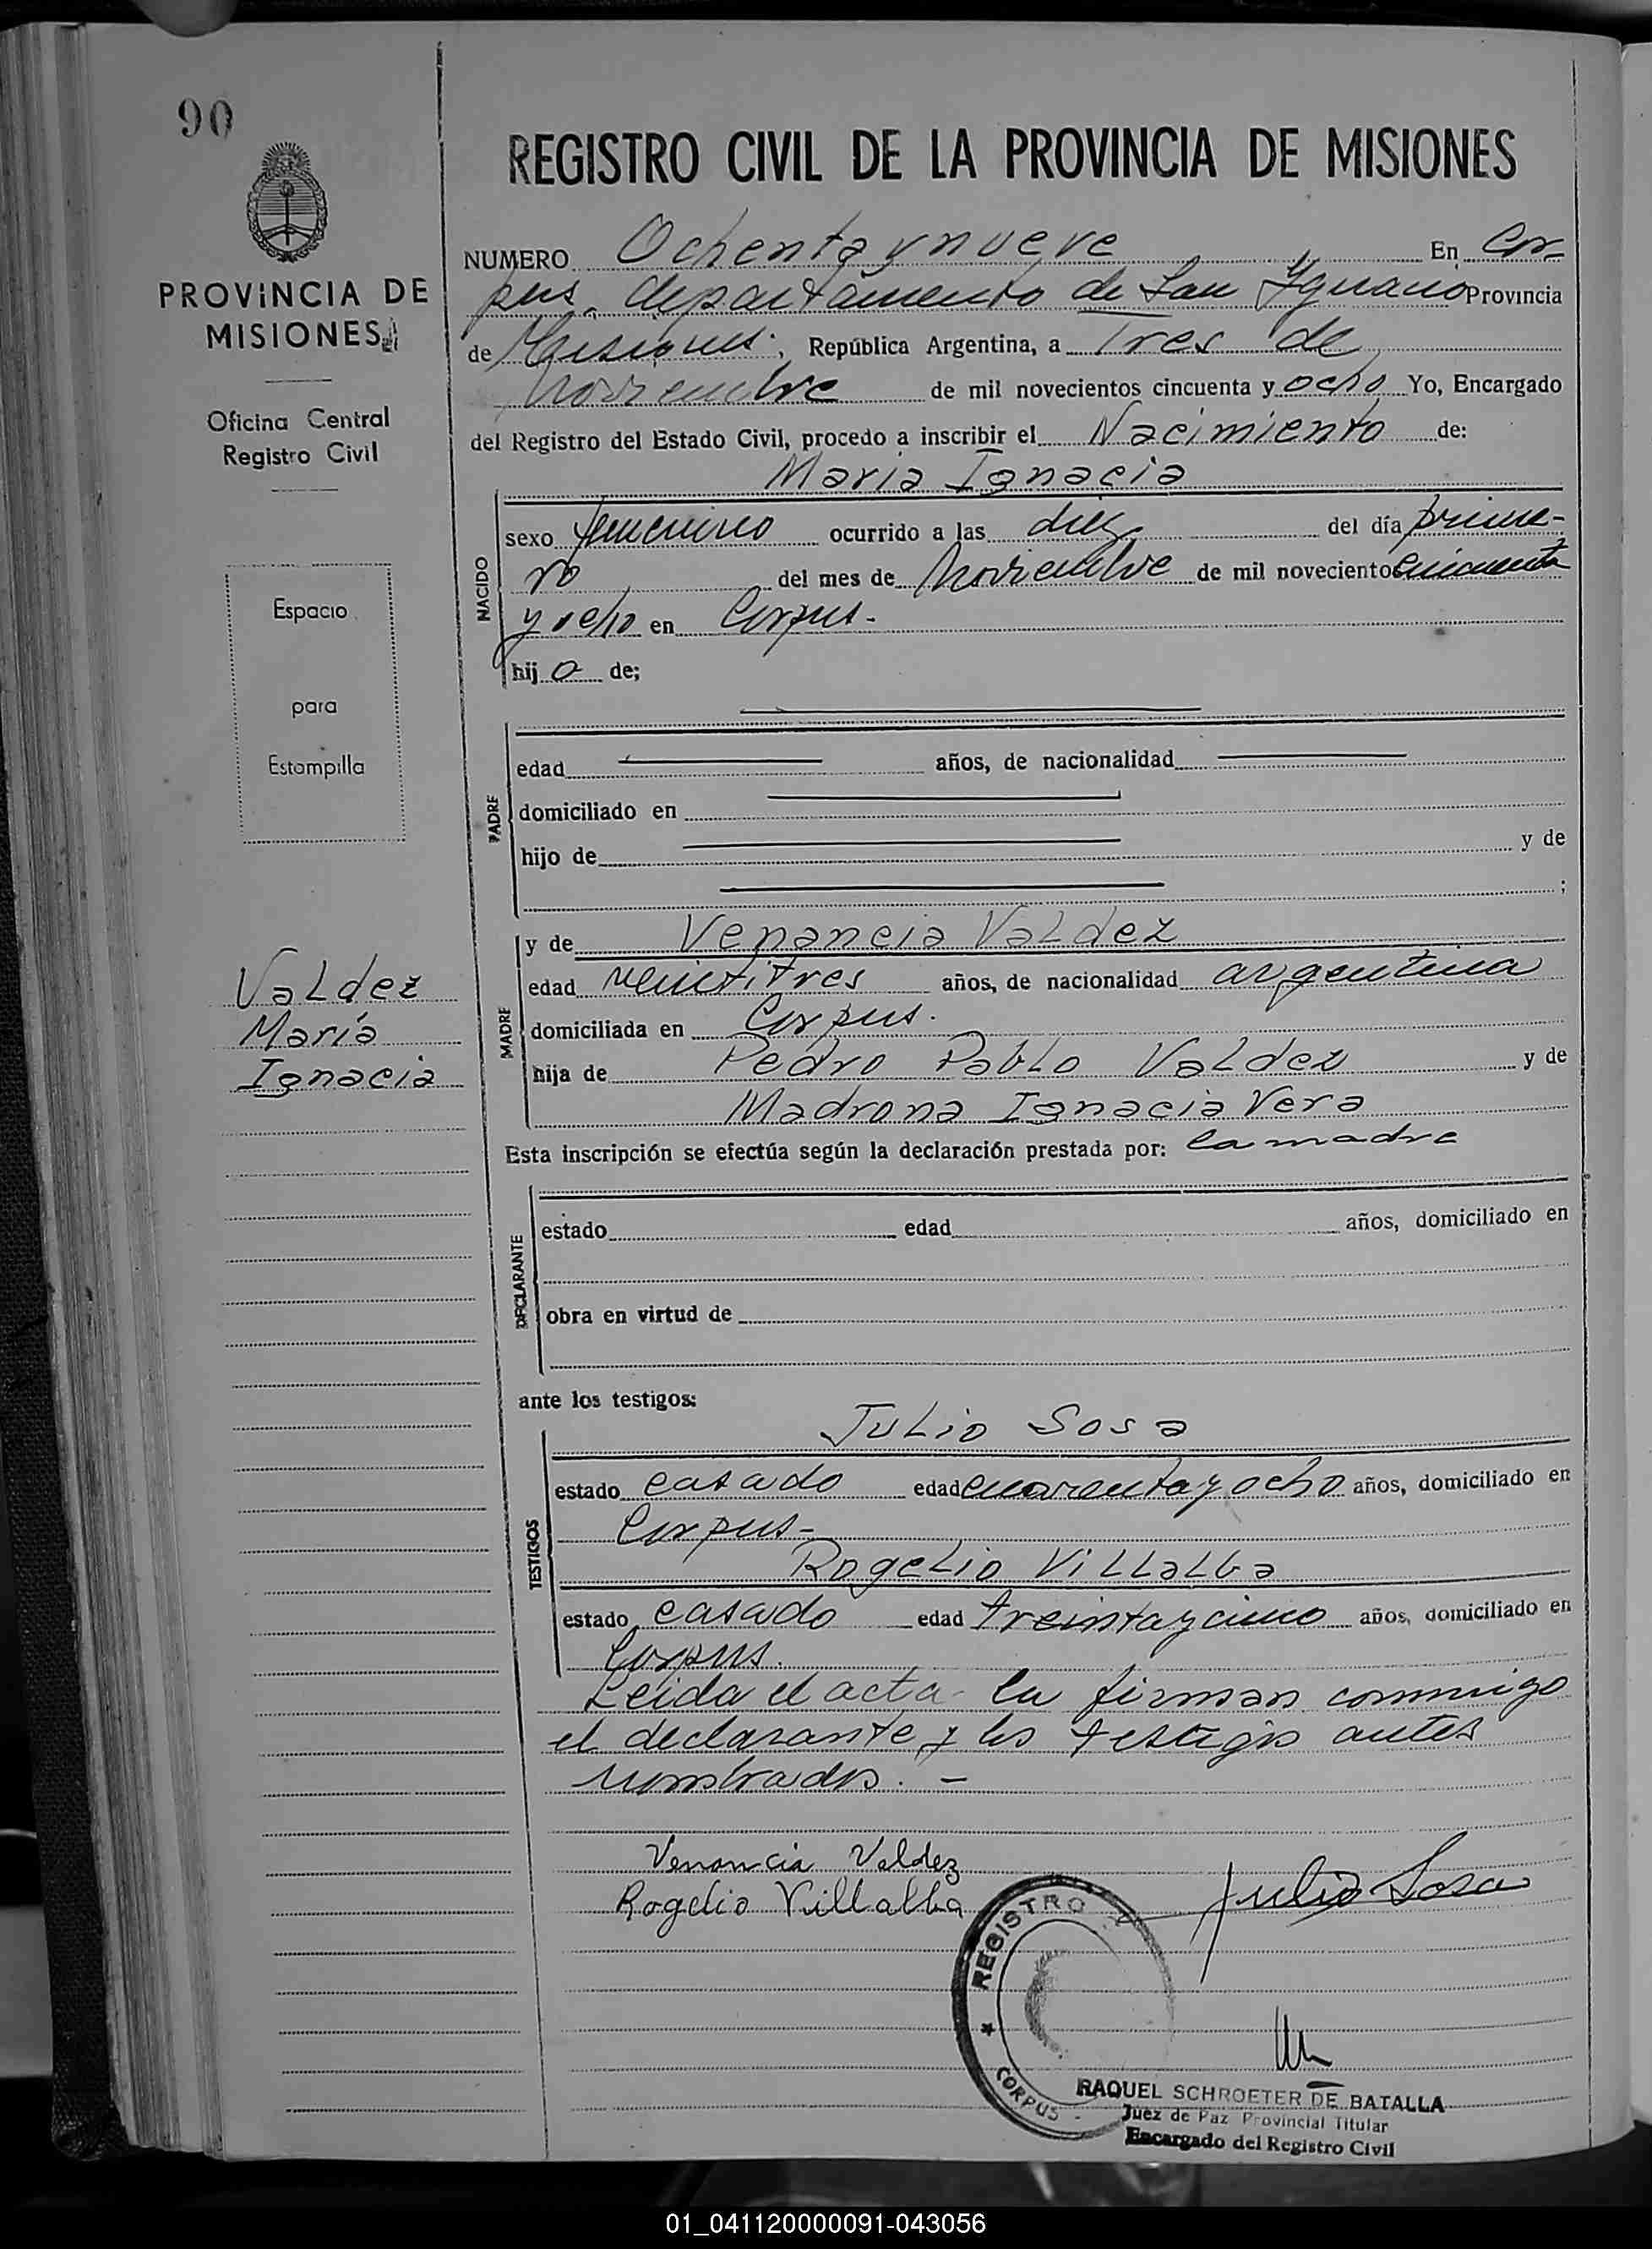 90
PROVINCIA DE
MISIONES
Oficina Central
Registro Civil
Espacio
para
Estampilla
Valdez
María
Ignacia
REGISTRO CIVIL DE LA PROVINCIA DE MISIONES
NUMERO Ochenta y nueve En Cor-
pus, departamento de San Ygnacio Provincia
de Misiones, República Argentina, a Tres de
noviembre de mil novecientos cincuenta y ocho Yo, Encargado
del Registro del Estado Civil, procedo a inscribir el Nacimiento de:
Maria Ignacia
NACIDO
sexo femenino ocurrido a las diez del día prime-
ro del mes de Noviembre de mil novecientos cincuenta
y ocho en Corpus.-
hij a de;
PADRE
edad años, de nacionalidad
domiciliado en
hijo de y de
;
MADRE
y de Venancia Valdez
edad veintitres años, de nacionalidad argentina
domiciliada en Corpus.
hija de Pedro Pablo Valdez y de
Madrona Ignacia Vera
Esta inscripción se efectúa según la declaración prestada por: la madre
DECLARANTE
estado edad años, domiciliado en
obra en virtud de
ante los testigos:
TESTIGOS
Julio Sosa
estado casado edad cuarenta y ocho años, domiciliado en
Corpus-
Rogelio Villalba
estado casado edad treinta y cinco años, domiciliado en
Corpus.
Leida el acta la firman conmigo
el declarante y los testigos antes
nombrados. -
Venancia Valdez
Rogelio Villalba
Julio Sosa
REGISTRO
CORPUS
RAQUEL SCHROETER DE BATALLA
Juez de Paz Provincial Titular
Encargado del Registro Civil
01_041120000091-043056